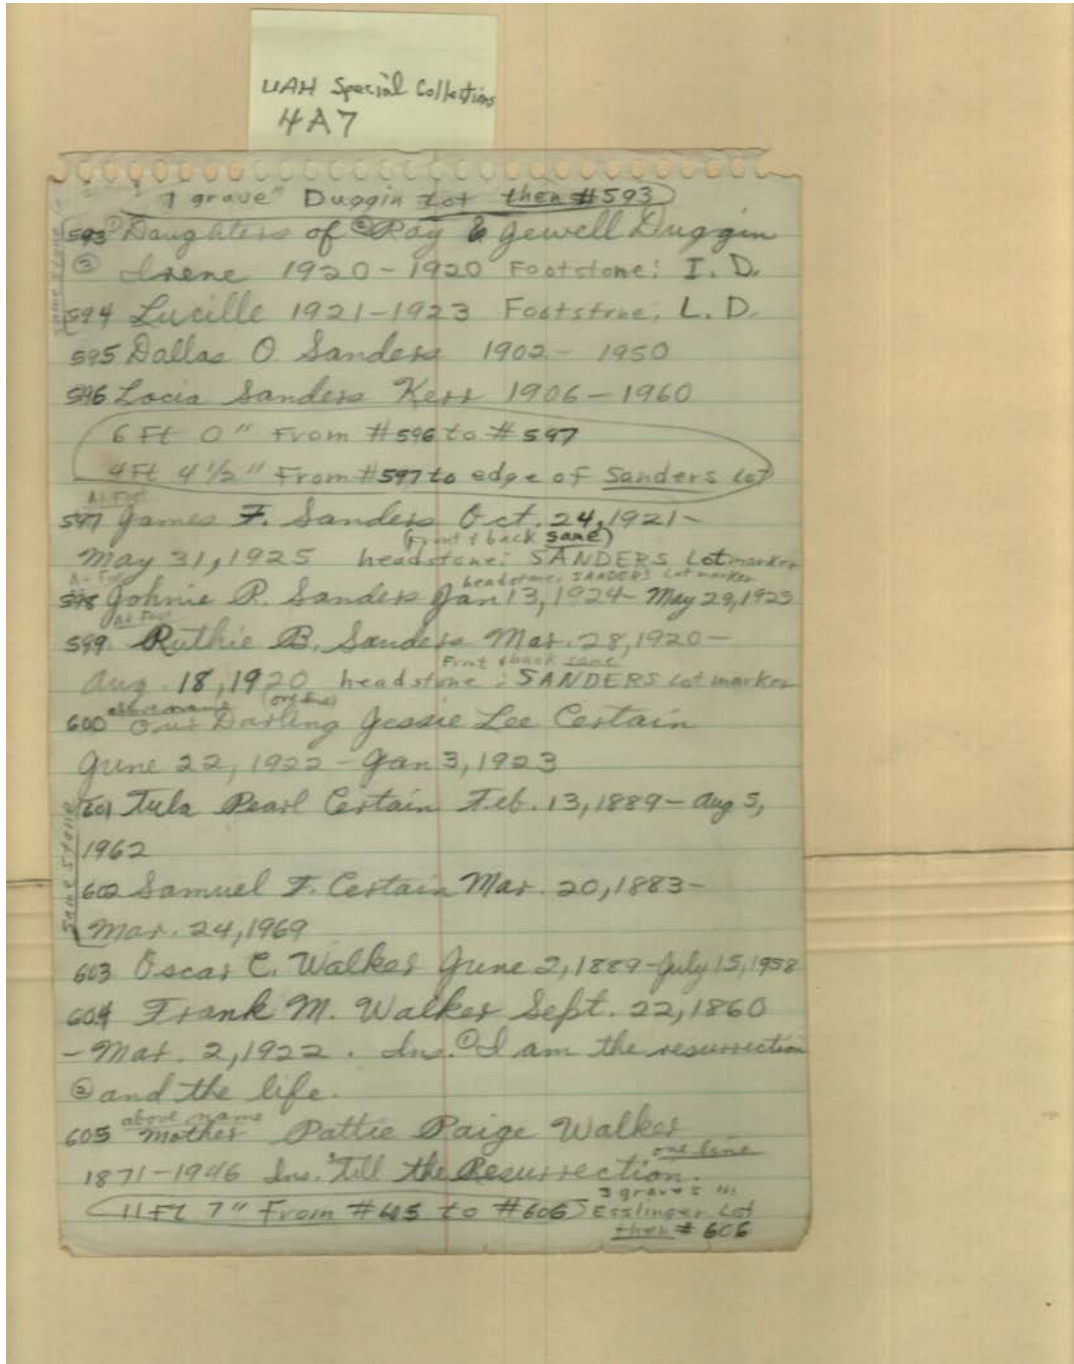 UAH Special Collections
4A7
"1 grave" Duggin Lot then #593
same stone
593 ① Daughters of ② Ray & Jewell Duggin
③ Irene 1920-1920 Footstone: I. D.
594 Lucille 1921-1923 Footstone: L. D.
595 Dallas O Sanders 1902- 1950
596 Locia Sanders Kerr 1906-1960
6 Ft 0" From #596 to #597
4Ft 4 1/2" From #597 to edge of Sanders Lot
At Foot
597 James F. Sanders Oct. 24, 1921-
(Front & back same)
May 31, 1925 headstone: SANDERS Lot marker
At Foot headstone: SANDERS Lot marker
598 Johnie R. Sanders Jan 13, 1924- May 29, 1925
At Foot
599. Ruthie B. Sanders Mar. 28, 1920-
Front & back same
Aug. 18, 1920 headstone: SANDERS Lot marker
above name (one line)
600 Our Darling Jessie Lee Certain
June 22, 1922 - Jan 3, 1923
same stone
601 Tula Pearl Certain Feb. 13, 1889- Aug 5,
1962
602 Samuel F. Certain Mar. 20, 1883-
Mar. 24, 1969
603 Oscar C. Walker June 2, 1889-July 15, 1958
604 Frank M. Walker Sept. 22, 1860
-Mar. 2, 1922. Ins. ① I am the resurrection
② and the life.
above name
605 Mother Pattie Paige Walker
one line
1871-1946 Ins. "Till the Resurrection.
3 graves in
11Ft 7" From #605 to #606 Esslinger Lot
then # 606